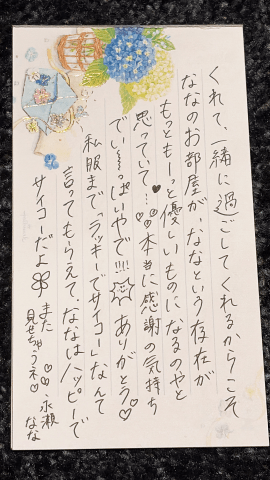 くれて、一緒に過ごしてくれるからこそ
ななのお部屋が、ななという存在が
もっともーっと優しいものになるのやと
思っていて…♥ 本当に感謝の気持ち
でい〜〜っぱいやで!!! ありがとう♡
私服まで「ラッキーでサイコー」なんて
言ってもらえて、ななはハッピーで
サイコーだよ
また
見せちゃうネ♡
永瀬
なな